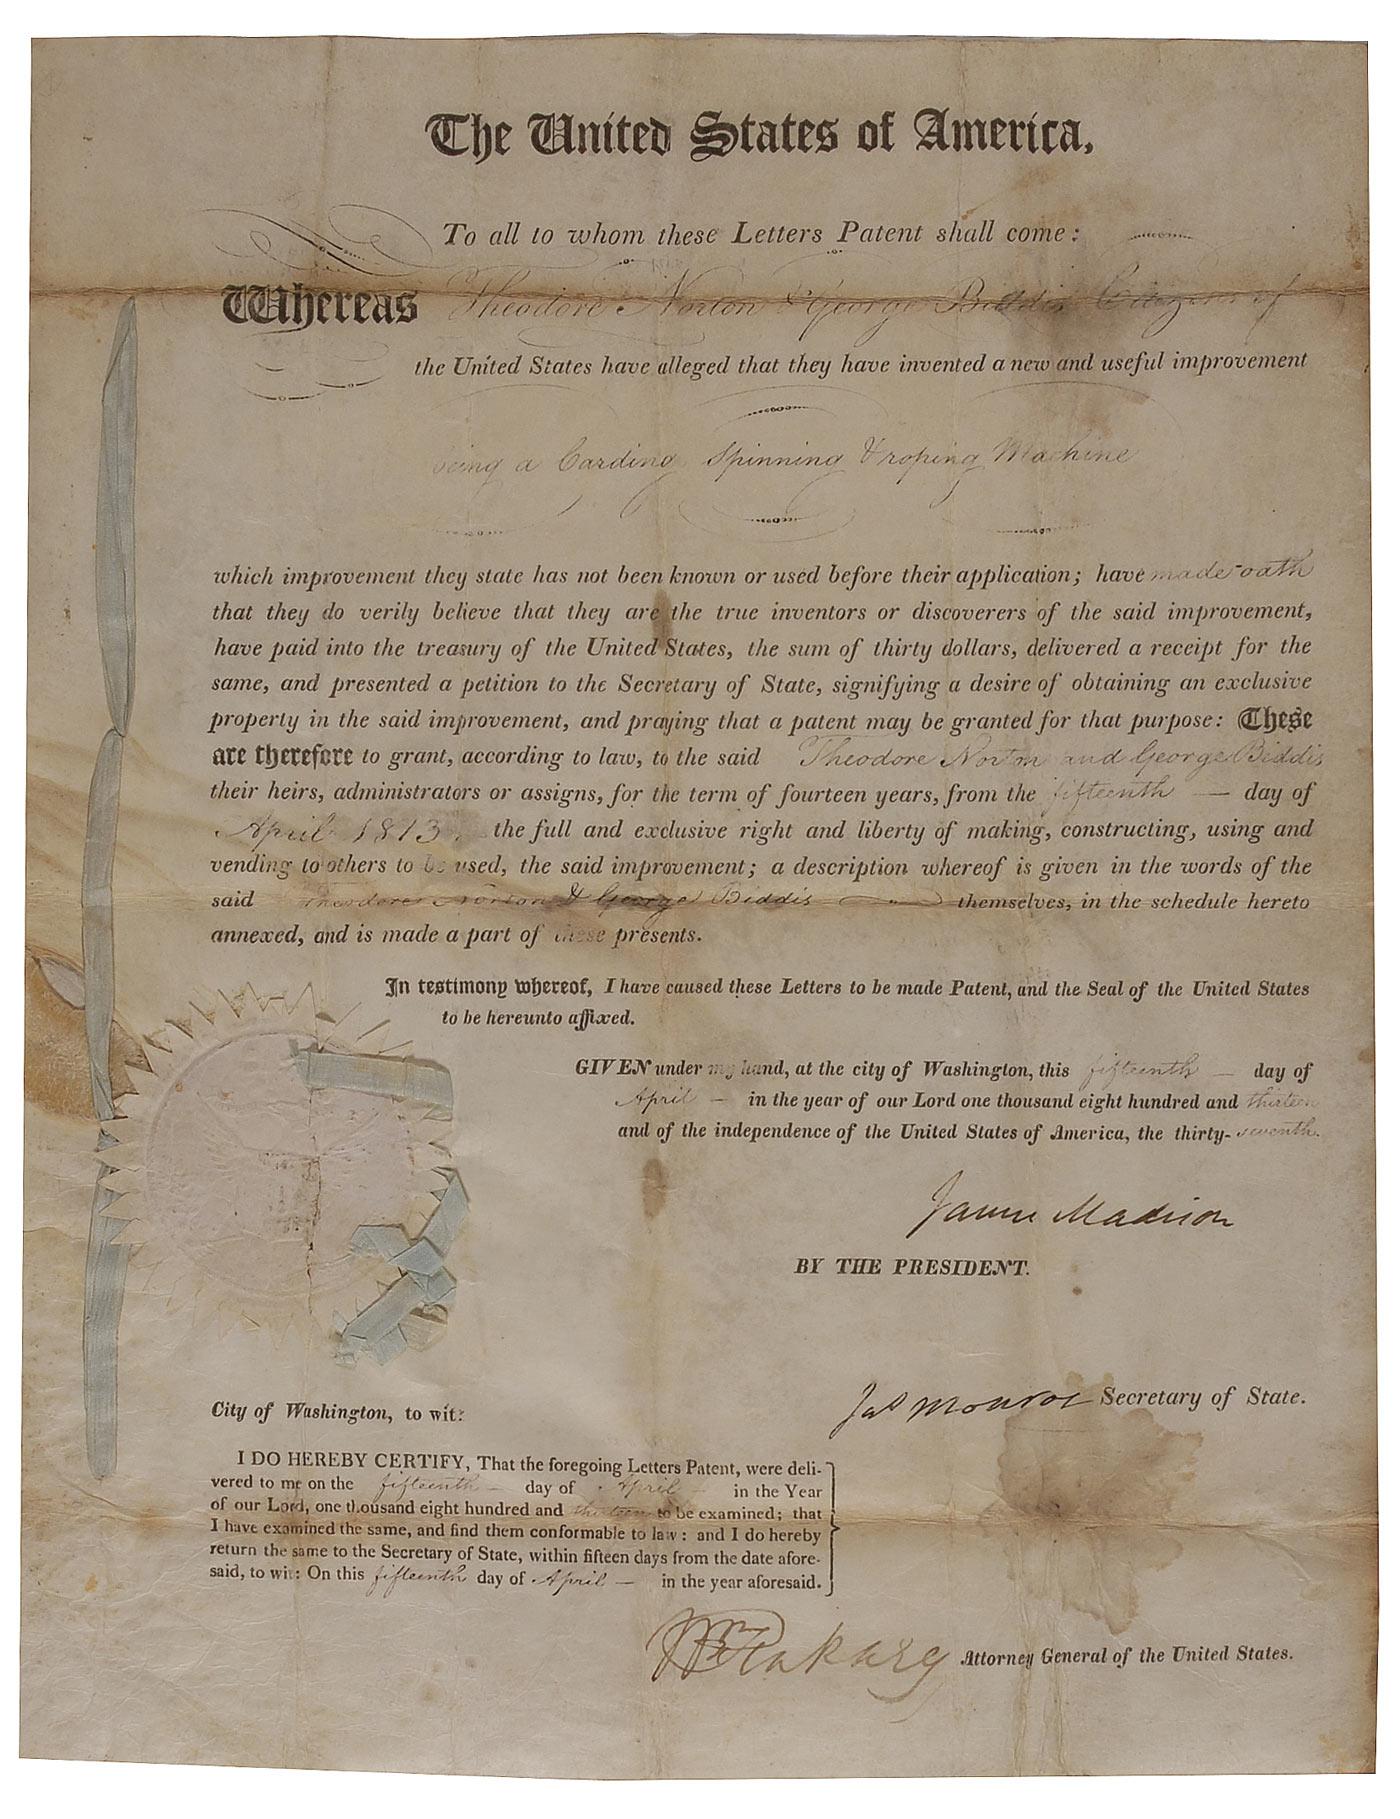 The United States of America,
To all to whom these Letters Patent shall come:
Whereas Theodore Norton & George Biddis Citizens of
the United States have alleged that they have invented a new and useful improvement
being a Carding Spinning & roping Machine
which improvement they state has not been known or used before their application; have made oath
that they do verily believe that they are the true inventors or discoverers of the said improvement,
have paid into the treasury of the United States, the sum of thirty dollars, delivered a receipt for the
same, and presented a petition to the Secretary of State, signifying a desire of obtaining an exclusive
property in the said improvement, and praying that a patent may be granted for that purpose: These
are therefore to grant, according to law, to the said Theodore Norton and George Biddis
their heirs, administrators or assigns, for the term of fourteen years, from the fifteenth — day of
April 1813, the full and exclusive right and liberty of making, constructing, using and
vending to others to be used, the said improvement; a description whereof is given in the words of the
said Theodore Norton & George Biddis themselves, in the schedule hereto
annexed, and is made a part of these presents.
In testimony whereof, I have caused these Letters to be made Patent, and the Seal of the United States
to be hereunto affixed.
GIVEN under my hand, at the city of Washington, this fifteenth — day of
April — in the year of our Lord one thousand eight hundred and thirteen
and of the independence of the United States of America, the thirty-seventh.
James Madison
BY THE PRESIDENT.
Jas Monroe Secretary of State.
City of Washington, to wit:
I DO HEREBY CERTIFY, That the foregoing Letters Patent, were deli-
vered to me on the fifteenth — day of April — in the Year
of our Lord, one thousand eight hundred and thirteen to be examined; that
I have examined the same, and find them conformable to law: and I do hereby
return the same to the Secretary of State, within fifteen days from the date afore-
said, to wit: On this fifteenth day of April — in the year aforesaid.
Attorney General of the United States.